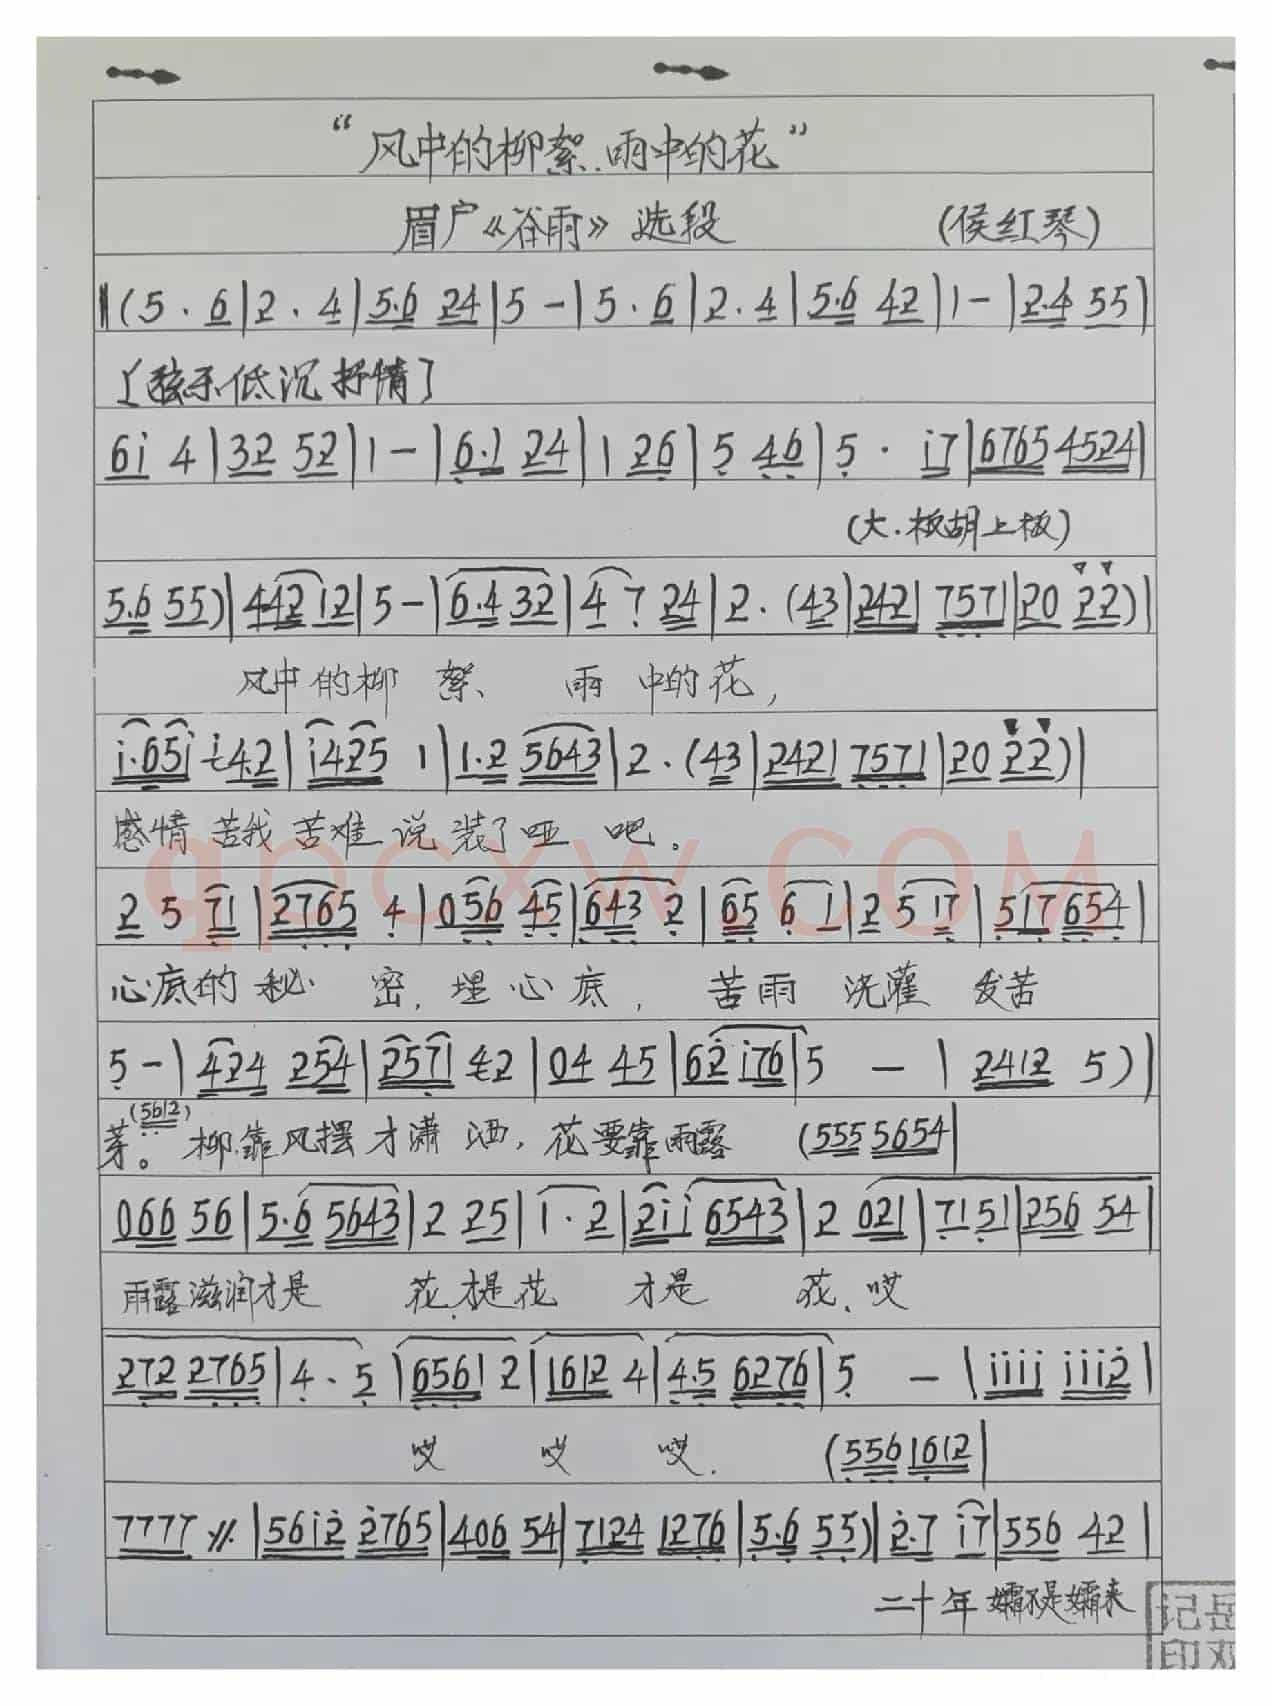 “风中的柳絮.雨中的花”
眉户《谷雨》选段 (侯红琴)
‖(5 . 6|2 . 4|5.6 24|5 -|5 . 6|2 . 4|5.6 42|1 -|2.4 55|
[弦乐低沉抒情]
6i 4|32 52|1 -|6.1 24|1 26|5 46|5 . i7|6765 4524|
(大.板胡上板)
5.6 55)|442 12|5 -|6.4 32|4 7 24|2 . (43|2421 7571|20 22)|
风中的柳 絮、 雨 中的花,
i.65i i42|i425 1|1.2 5643|2 . (43|2421 7571|20 22)|
感情苦我苦难说装了哑 吧。
qpcxw.COM
2 5 71|2765 4|056 45|643 2|65 6 1|2 5 17|517654|
心底的秘 密,埋心底, 苦雨 浇灌 发苦
5 -|424 254|2571 42|04 45|62 i76|5 — |2412 5)|
芽。(5612) 柳靠风摆才潇洒,花要靠雨露 (555 5654|
066 56|5.6 5643|2 25|1 . 2|2ii 6543|2 021|7151|256 54|
雨露滋润才是 花.才是花 才是 花、哎
272 2765|4 . 5|6561 2|1612 4|4.5 6276|5 — |iiii iii2|
哎 哎 哎. (556 1612|
7777 ⁄⁄.|56i2 2765|406 54|7124 1276|5.6 55)|2.7 i7|556 42|
二十年孀不是孀来
记岳
印双